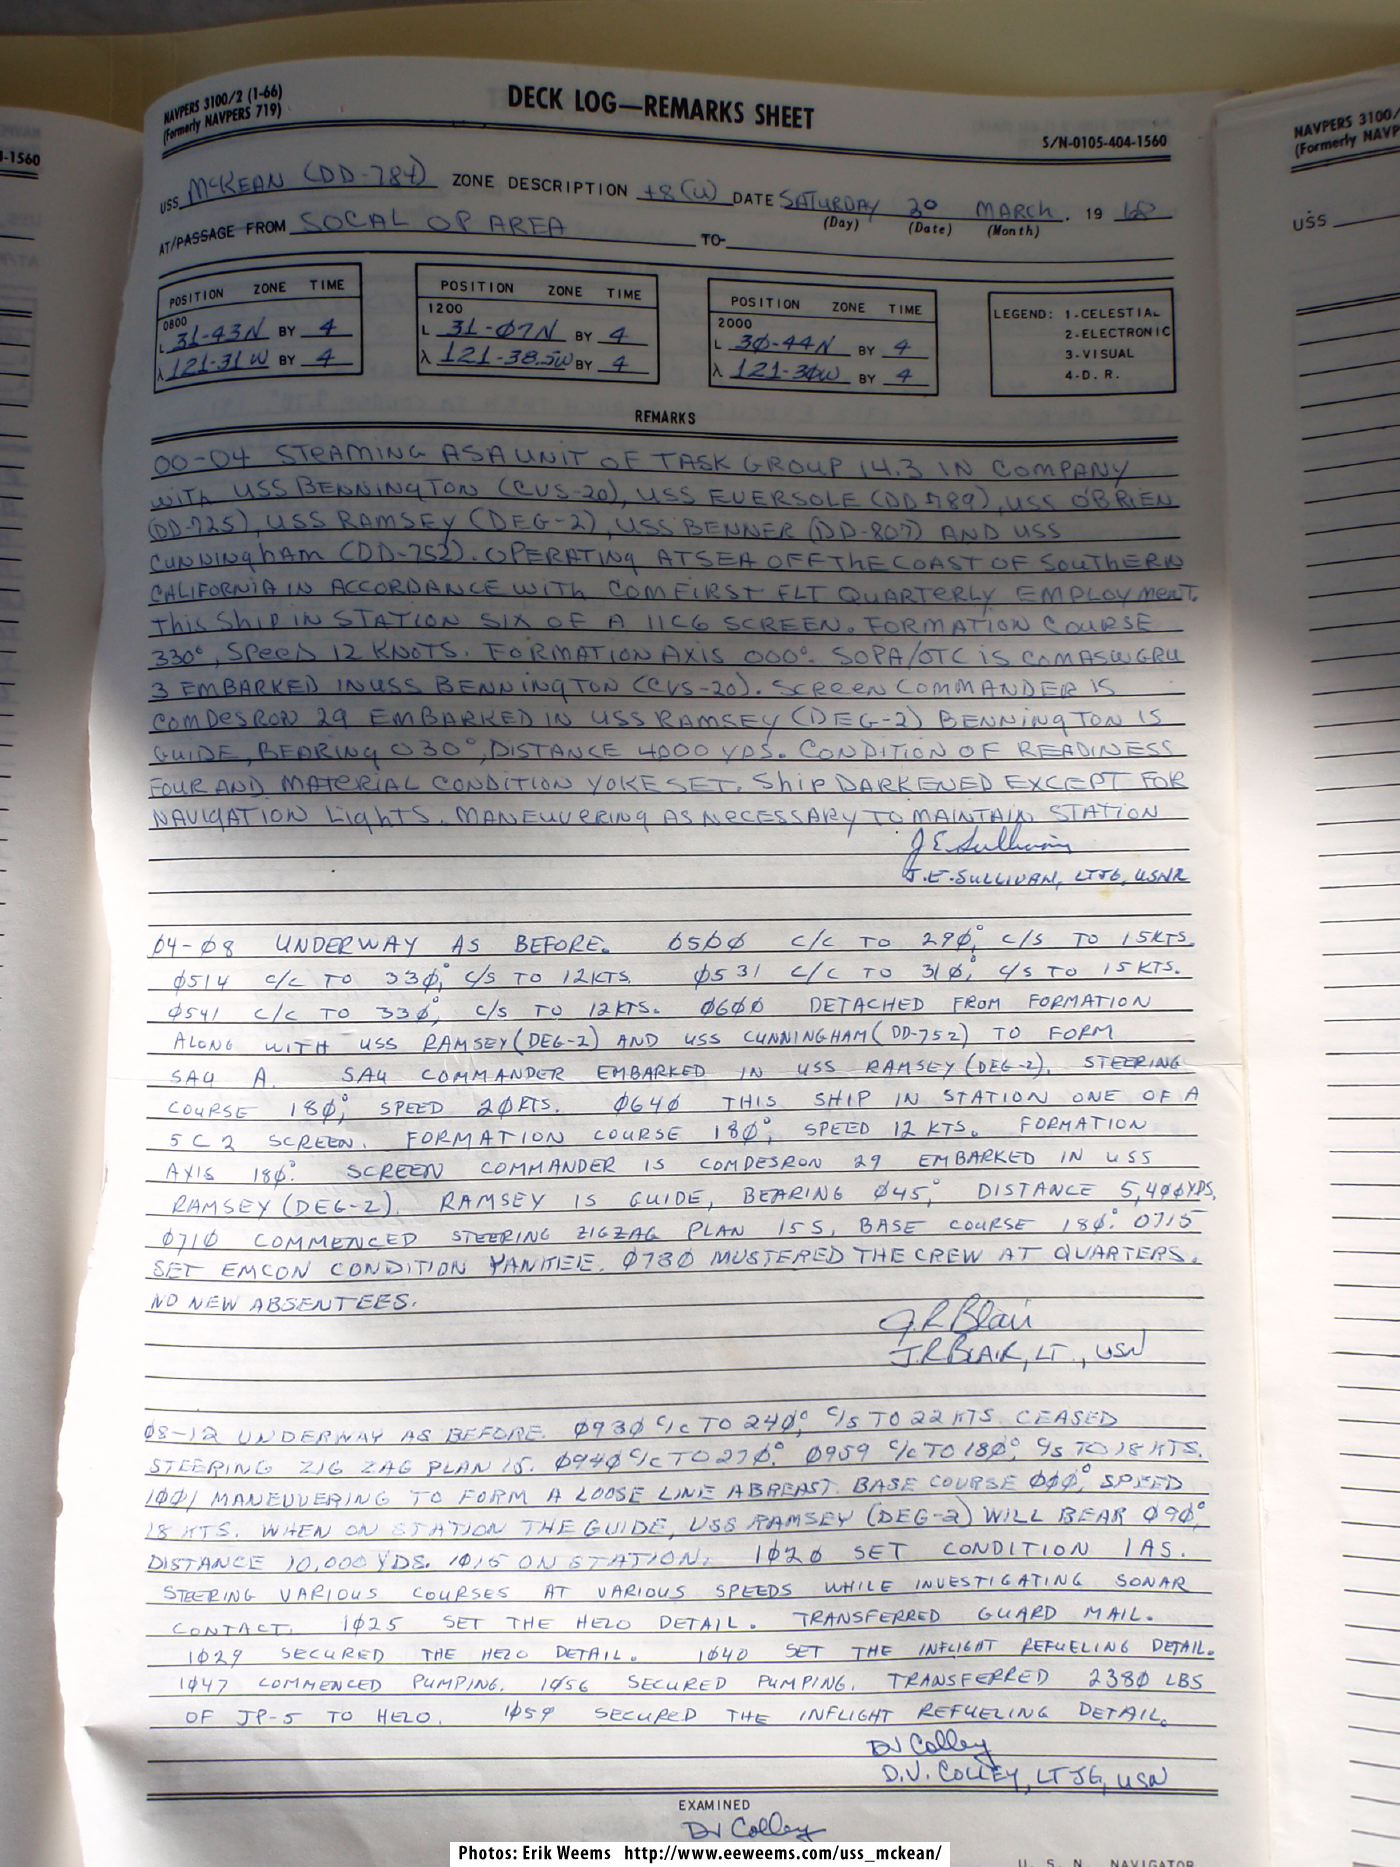 NAVPERS 3100/2 (1-66)
(Formerly NAVPERS 719)
DECK LOG—REMARKS SHEET
S/N-0105-404-1560
USS McKEAN (DD-784) ZONE DESCRIPTION +8 (U) DATE SATURDAY 30 MARCH, 19 68
(Day) (Date) (Month)
AT/PASSAGE FROM SOCAL OP AREA TO-
POSITION ZONE TIME
0800
L 31-43N BY 4
λ 121-31W BY 4
POSITION ZONE TIME
1200
L 31-07N BY 4
λ 121-38.5W BY 4
POSITION ZONE TIME
2000
L 30-44N BY 4
λ 121-30W BY 4
LEGEND: 1-CELESTIAL
2-ELECTRONIC
3-VISUAL
4-D. R.
REMARKS
00-04 STEAMING AS A UNIT OF TASK GROUP 14.3 IN COMPANY
WITH USS BENNINGTON (CVS-20), USS EVERSOLE (DD 789), USS O'BRIEN
(DD-725), USS RAMSEY (DEG-2), USS BENNER (DD-807) AND USS
CUNNINGHAM (DD-752). OPERATING AT SEA OFF THE COAST OF SOUTHERN
CALIFORNIA IN ACCORDANCE WITH COMFIRST FLT QUARTERLY EMPLOYMENT.
THIS SHIP IN STATION SIX OF A 11C6 SCREEN. FORMATION COURSE
330°, SPEED 12 KNOTS. FORMATION AXIS 000°. SOPA/OTC IS COMASWGRU
3 EMBARKED IN USS BENNINGTON (CVS-20). SCREEN COMMANDER IS
COMDESRON 29 EMBARKED IN USS RAMSEY (DEG-2) BENNINGTON IS
GUIDE, BEARING 030°, DISTANCE 4000 YDS. CONDITION OF READINESS
FOUR AND MATERIAL CONDITION YOKE SET. SHIP DARKENED EXCEPT FOR
NAVIGATION LIGHTS. MANEUVERING AS NECESSARY TO MAINTAIN STATION
J E Sullivan
J.E. SULLIVAN, LTJG, USNR
04-08 UNDERWAY AS BEFORE. 0500 C/C TO 290°, C/S TO 15KTS.
0514 C/C TO 330°, C/S TO 12KTS. 0531 C/C TO 310°, C/S TO 15 KTS.
0541 C/C TO 330°, C/S TO 12KTS. 0600 DETACHED FROM FORMATION
ALONG WITH USS RAMSEY (DEG-2) AND USS CUNNINGHAM (DD-752) TO FORM
SAU A. SAU COMMANDER EMBARKED IN USS RAMSEY (DEG-2). STEERING
COURSE 180°, SPEED 20KTS. 0640 THIS SHIP IN STATION ONE OF A
5C2 SCREEN. FORMATION COURSE 180°, SPEED 12 KTS. FORMATION
AXIS 180°. SCREEN COMMANDER IS COMDESRON 29 EMBARKED IN USS
RAMSEY (DEG-2). RAMSEY IS GUIDE, BEARING 045°, DISTANCE 5,400YDS.
0710 COMMENCED STEERING ZIGZAG PLAN 15S, BASE COURSE 180°. 0715
SET EMCON CONDITION YANKEE. 0730 MUSTERED THE CREW AT QUARTERS.
NO NEW ABSENTEES.
J.R Blair
J.R BLAIR, LT., USN
08-12 UNDERWAY AS BEFORE. 0930 C/C TO 240°, C/S TO 22 KTS. CEASED
STEERING ZIG ZAG PLAN 15. 0940 C/C TO 270°. 0959 C/C TO 180°, C/S TO 18 KTS.
1001 MANEUVERING TO FORM A LOOSE LINE ABREAST. BASE COURSE 000°, SPEED
18 KTS. WHEN ON STATION THE GUIDE, USS RAMSEY (DEG-2) WILL BEAR 090°,
DISTANCE 10,000 YDS. 1015 ON STATION. 1020 SET CONDITION 1AS.
STEERING VARIOUS COURSES AT VARIOUS SPEEDS WHILE INVESTIGATING SONAR
CONTACT. 1025 SET THE HELO DETAIL. TRANSFERRED GUARD MAIL.
1029 SECURED THE HELO DETAIL. 1040 SET THE INFLIGHT REFUELING DETAIL.
1047 COMMENCED PUMPING. 1056 SECURED PUMPING. TRANSFERRED 2380 LBS
OF JP-5 TO HELO. 1059 SECURED THE INFLIGHT REFUELING DETAIL.
DV Colley
D.V. COLLEY, LTJG, USN
EXAMINED
DV Colley
U. S. N. NAVIGATOR
Photos: Erik Weems http://www.eeweems.com/uss_mckean/
-1560
NAVPERS 3100/
(Formerly NAVP
USS